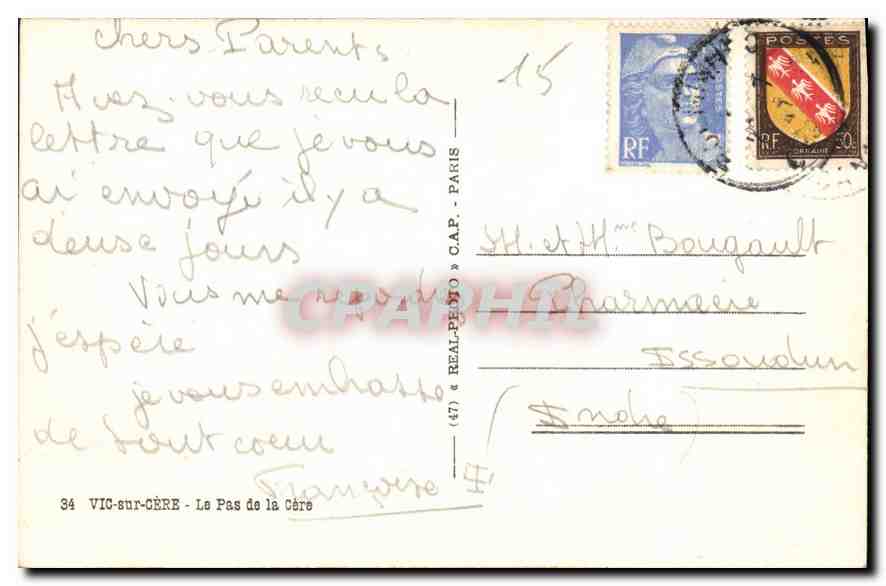 chers Parents
Avez-vous recu la
lettre que je vous
ai envoyé il y a
deuse jours
Vous me
j'espère
je vous embrasse
de tout coeur
Françoise
34 VIC-sur-CÈRE - Le Pas de la Cère
(47) « REAL-PHOTO » C.A.P. - PARIS
15
RF
POSTES
POSTES
RF
LORRAINE
M. et Mme Bougault
Pharmacie
Issoudun
(Indre)
CPAPHIL